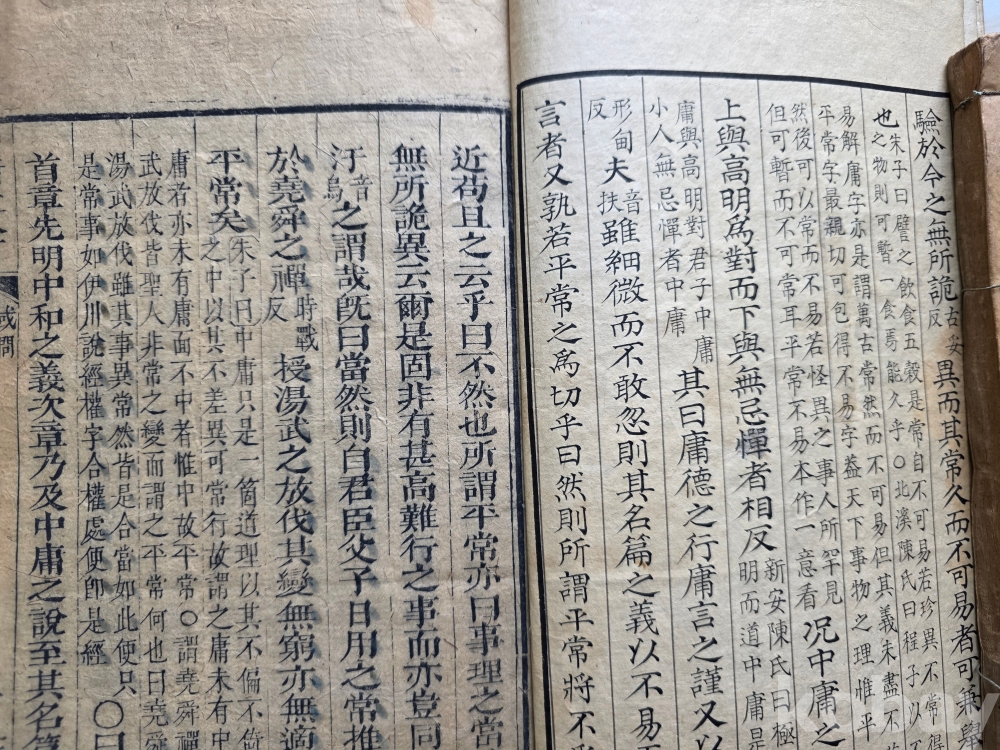 驗於今之無所詭古委反異而其常久而不可易者可兼
也朱子曰譬之飲食五穀是常自不可易若珍異不常得
之物則可暫一食焉能久乎○北溪陳氏曰程子以不
易解庸字亦是謂萬古常然而不可易但其義未盡不
平常字最親切可包得不易字蓋天下事物之理惟平
然後可以常而不易若怪異之事人所罕見
但可暫而不可常耳平常不易本作一意看況中庸之
上與高明為對而下與無忌憚者相反新安陳氏曰極
高明而道中庸是
庸與高明對君子中庸
小人無忌憚者中庸其曰庸德之行庸言之謹又以
形甸反夫音扶雖細微而不敢忽則其名篇之義以不易
言者又孰若平常之為切乎曰然則所謂平常將不
近苟且之云乎曰不然也所謂平常亦曰事理之當
無所詭異云爾是固非有甚高難行之事而亦豈同
汙音烏之謂哉既曰當然則自君臣父子日用之常推
於堯舜之禪時戰反授湯武之放伐其變無窮亦無適
平常矣朱子曰中庸只是一箇道理以其不偏不倚
之中以其不差異可常行故謂之庸未有中
庸者亦未有庸而不中者惟中故平常○謂堯舜禪
武放伐皆聖人非常之變而謂之平常何也曰堯舜
湯武放伐雖其事異常然皆是合當如此便只
是常事如伊川說經權字合權處便即是經○曰
首章先明中和之義次章乃及中庸之說至其名篇
或問